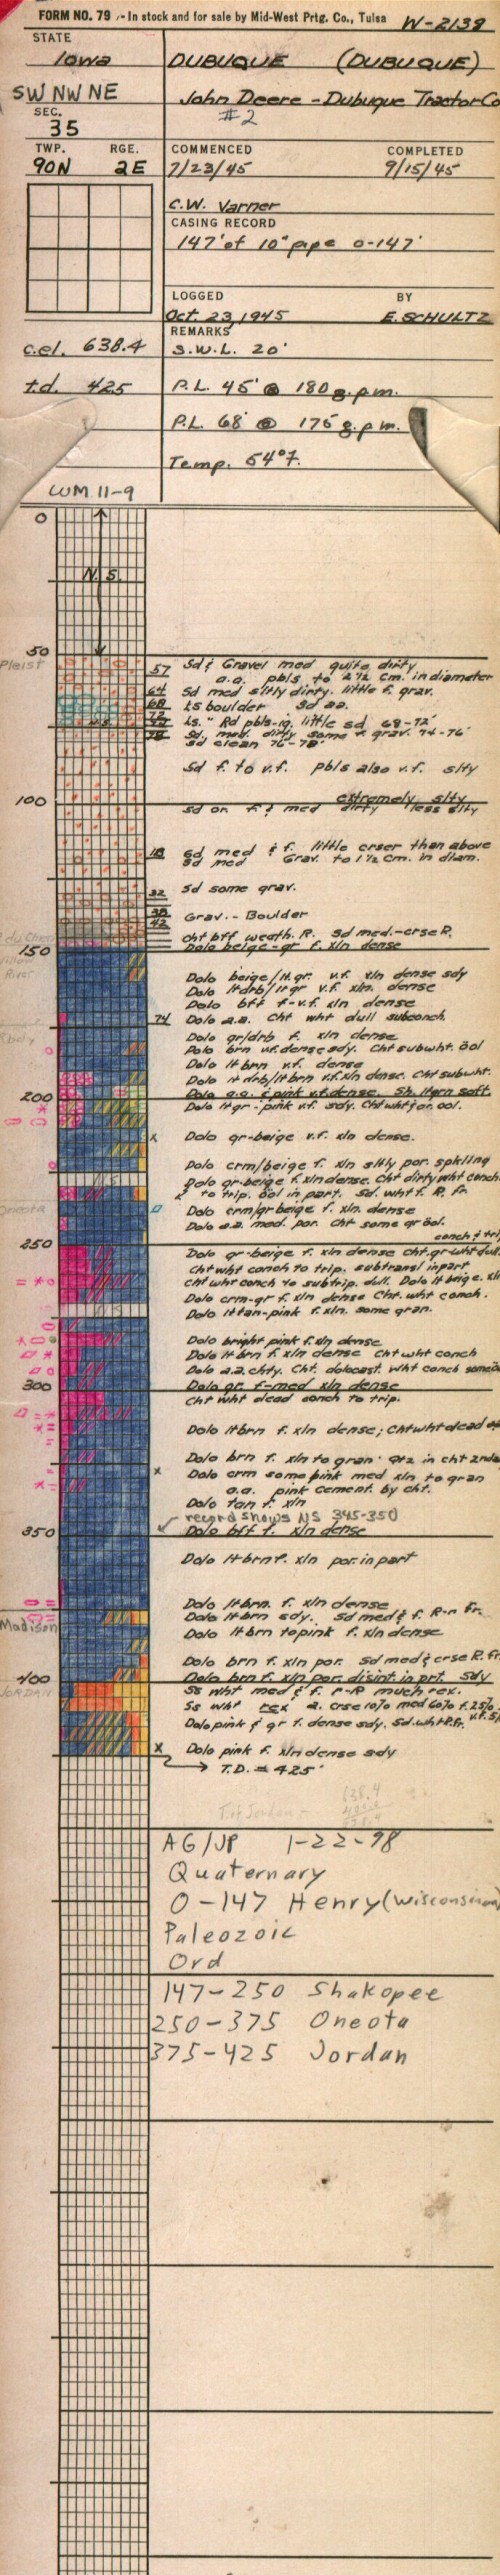 FORM NO. 79 -- In stock and for sale by Mid-West Prtg. Co., Tulsa W-2138
STATE
Iowa DUBUQUE (DUBUQUE)
SW NW NE John Deere - Dubuque Tractor Co
SEC. #2
35
TWP. RGE. COMMENCED COMPLETED
90N 2E 7/23/45 9/15/45
C.W. Varner
CASING RECORD
147' of 10" pipe 0-147'
LOGGED BY
Oct. 23, 1945 E. SCHULTZ
REMARKS
c.el. 638.4 S.W.L. 20'
t.d. 425 P.L. 45' @ 180 g.p.m.
P.L. 68' @ 175 g.p.m.
Temp. 54°F.
WM 11-9
0
N.S.
50
Pleist
57 Sd & Gravel med quite dirty
a.a. pbls to 2 1/2 cm. in diameter
64 Sd med sltly dirty. little f. grav.
68 Ls boulder Sd aa.
Ls. " Rd pbls-ig. little sd 68-72'
N.S.
78 Sd, med. dirty some f. grav. 74-76'
sd clean 76-78'
Sd f. to v.f. pbls also v.f. slty
extremely slty
100
sd or f & med dirty less slty
18 Sd med & f. little crser than above
Sd med Grav. to 1 1/2 cm. in diam.
32 Sd some grav.
38 Grav. - Boulder
42
Cht bff weath. R. Sd med.-crse R.
150 Dolo beige-gr f. xln dense
Dolo beige/lt.gr. v.f. xln dense sdy
Dolo ltdrb/ltgr v.f. xln. dense
Dolo bff f-v.f. xln dense
74 Dolo a.a. Cht wht dull subconch.
Dolo gr/drb f. xln dense
Dolo brn v.f. dense sdy. Cht subwht. ool
Dolo lt brn v.f. dense
Dolo lt drb/lt brn v.f. xln dense. Cht subwht.
200 Dolo a.a. & pink v.f. dense. Sh. ltgrn soft.
Dolo ltgr-pink v.f. sdy. Cht wht & or. ool.
x Dolo gr-beige v.f. xln dense.
Dolo crm/beige f. xln sltly por. spkling
Dolo gr-beige f. xln dense. Cht dirty wht conch.
to trip. ool in part. Sd. wht f. R. fr.
Oneota
Dolo crm/gr-beige f. xln. dense
Dolo a.a. med. por. Cht some gr ool.
conch & trip
250 Dolo gr-beige f. xln dense cht. gr-wht dull
Cht wht conch to trip. subtransl in part
Cht wht conch to subtrip. dull. Dolo lt beige. xln
Dolo crm-gr f. xln dense Cht. wht conch.
Dolo lttan-pink f. xln. some gran.
Dolo bright pink f. xln dense
Dolo lt brn f. xln dense Cht wht conch
Dolo a.a. chty. Cht. dolocast. wht conch some
300 Dolo gr. f-med xln dense
Cht wht dead conch to trip.
Dolo lt brn f. xln dense; Cht wht dead
Dolo brn f. xln to gran. qtz in cht
x Dolo crm some pink med xln to gran
a.a. pink cement. by cht.
Dolo tan f. xln
record shows NS 345-350
350 Dolo bff f. xln dense
Dolo lt brn f. xln por. in part
Dolo lt brn. f. xln dense
Dolo lt brn sdy. Sd med & f. R-r Fr.
Madison Dolo lt brn to pink f. xln dense
Dolo brn f. xln por. Sd med & crse R. fr.
400 Dolo brn f. xln por. disint. in prt. Sdy
JORDAN Ss wht med & f. r-R much rex.
Ss wht rex a. crse 10% med 60% f. 25%
Dolo pink & gr f. dense sdy. Sd. wht R. fr.
x Dolo pink f. xln dense sdy
T.D. = 425'
T. of Jordan -
AG/JP 1-22-98
Quaternary
0-147 Henry (Wisconsinan)
Paleozoic
Ord
147-250 Shakopee
250-375 Oneota
375-425 Jordan